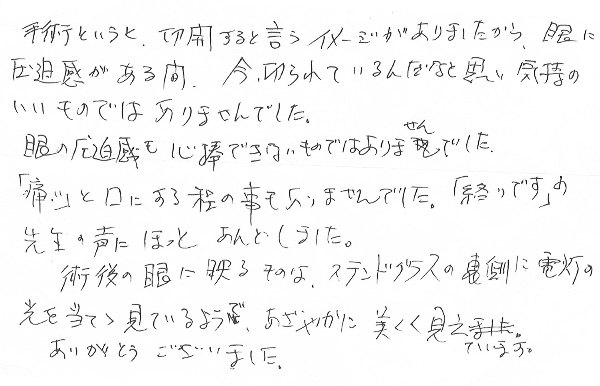 手術というと、切開すると言うイメージがありましたから、眼に
圧迫感がある間、今、切られているんだなと思い気持の
いいものではありませんでした。
眼の圧迫感も心棒できないものではありませんでした。
「痛い」と口にする程の事もありませんでした。「終りです」の
先生の声にほっとあんどしました。
術後の眼に映るものは、ステンドグラスの裏側に電灯の
光を当てゝ見ているようで、あざやかに美くく見えています。
ありがとうございました。